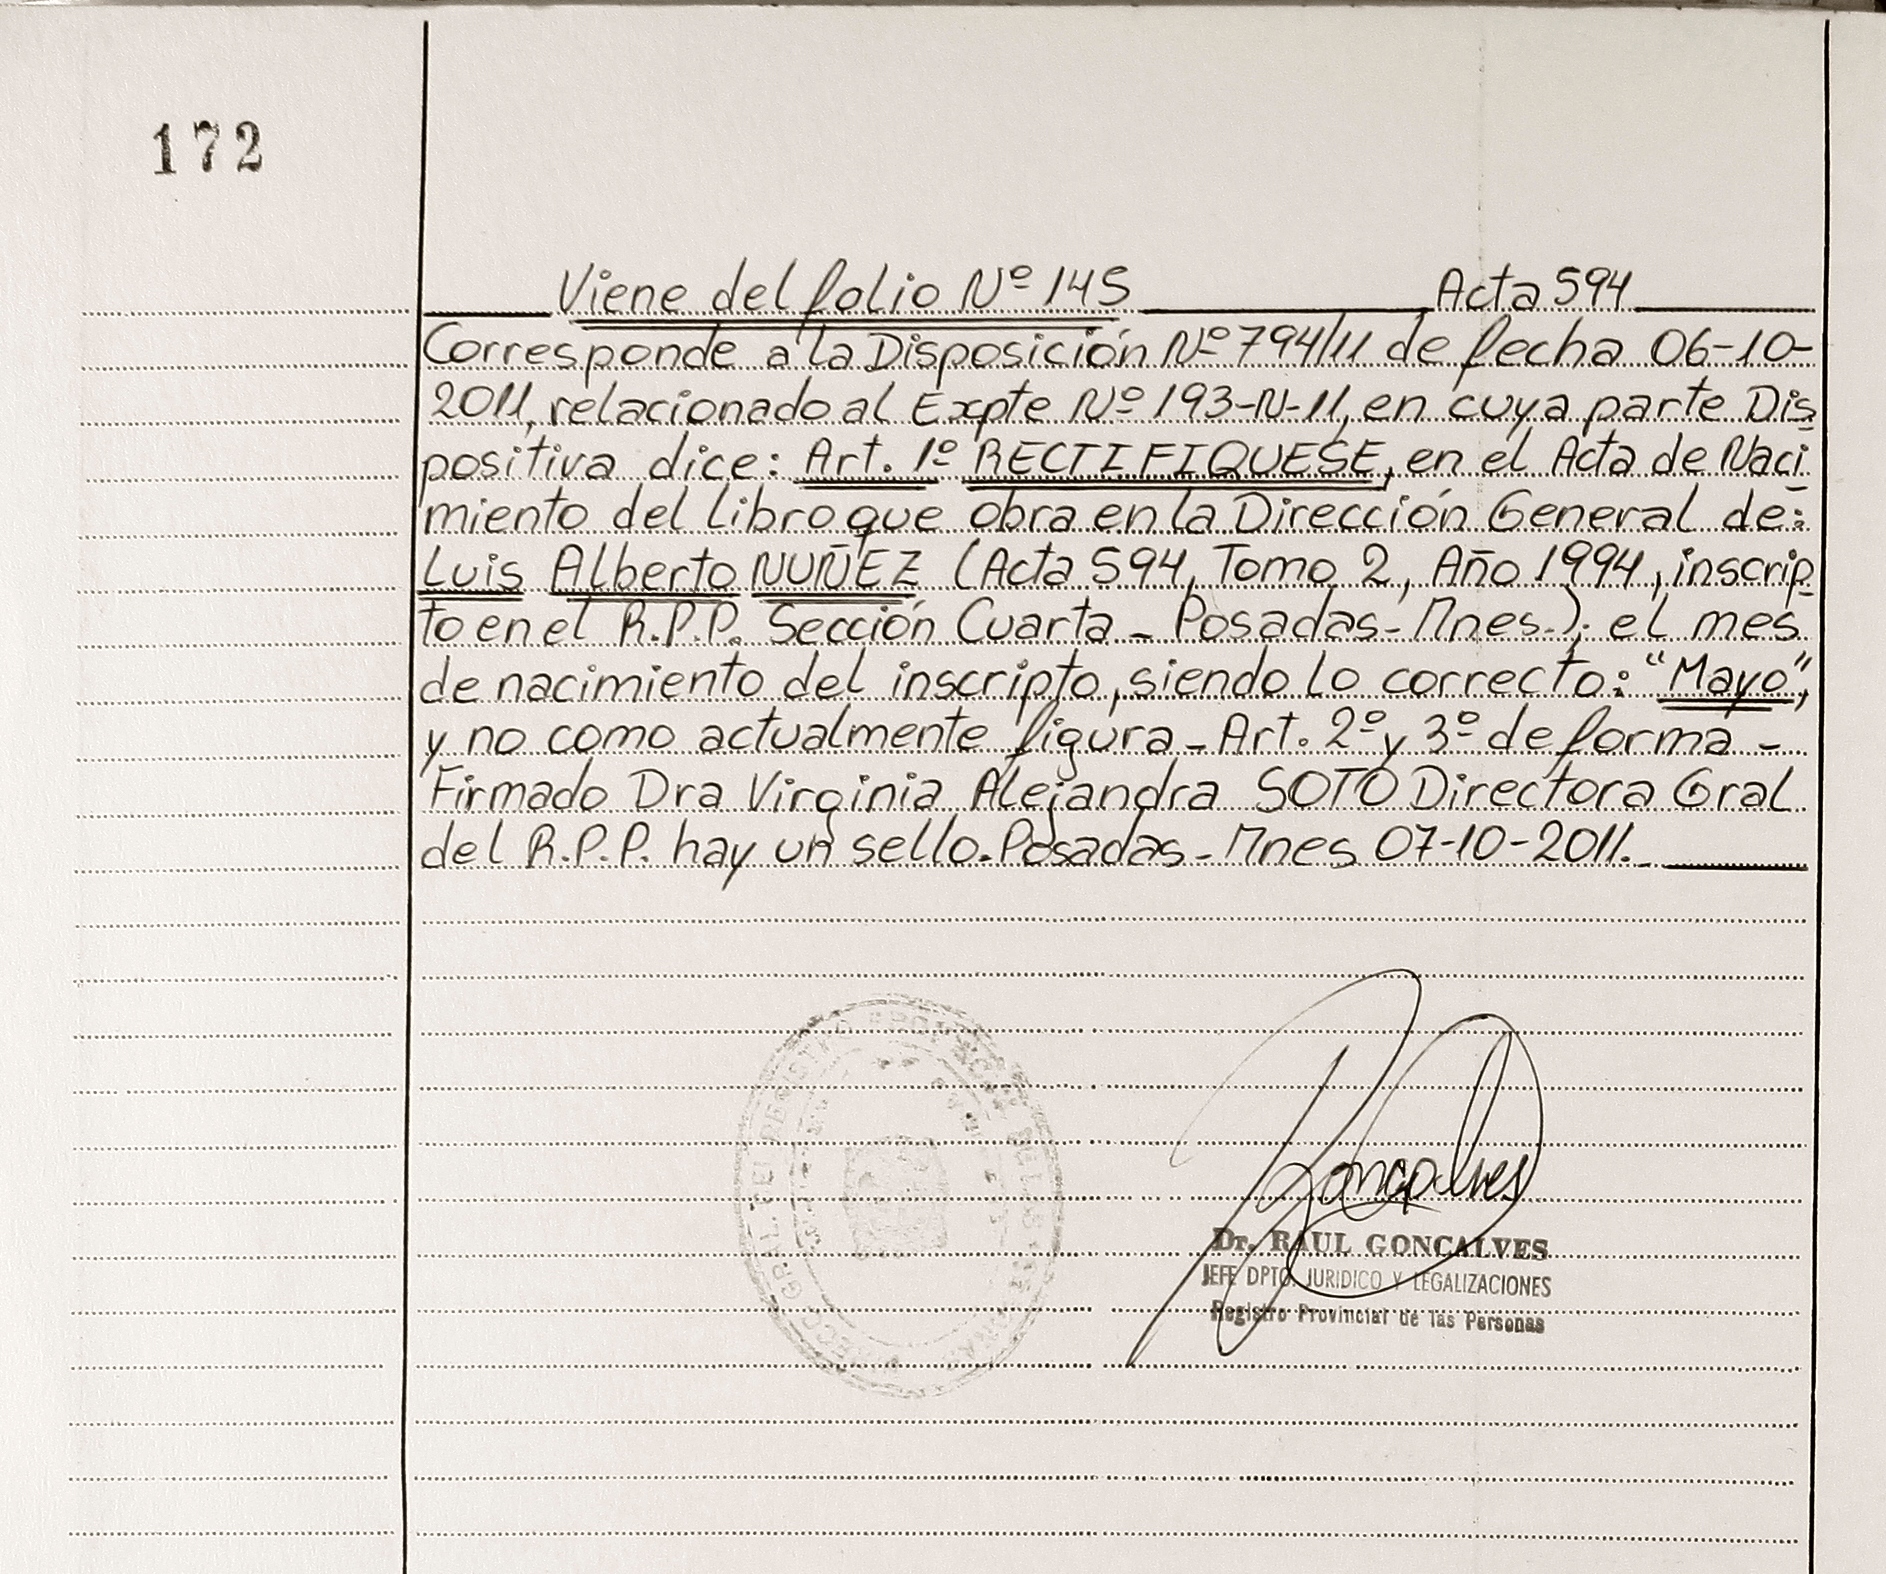 172
Viene del folio Nº 145 Acta 594
Corresponde a la Disposición Nº 794/11 de fecha 06-10-
2011, relacionado al Expte Nº 193-N-11, en cuya parte Dis
positiva dice: Art. 1º RECTIFIQUESE, en el Acta de Naci
miento del Libro que obra en la Dirección General de:
Luis Alberto NUÑEZ (Acta 594, Tomo 2, Año 1994, inscrip
to en el R.P.P. Sección Cuarta - Posadas - Mnes.); el mes
de nacimiento del inscripto, siendo lo correcto: "Mayo",
y no como actualmente figura - Art. 2º y 3º de forma -
Firmado Dra Virginia Alejandra SOTO Directora Gral
del R.P.P. hay un sello. Posadas - Mnes 07-10-2011.-
GRAL. DEL REGISTRO
Goncalves
Dr. RAUL GONCALVES
JEFE DPTO. JURIDICO Y LEGALIZACIONES
Registro Provincial de las Personas